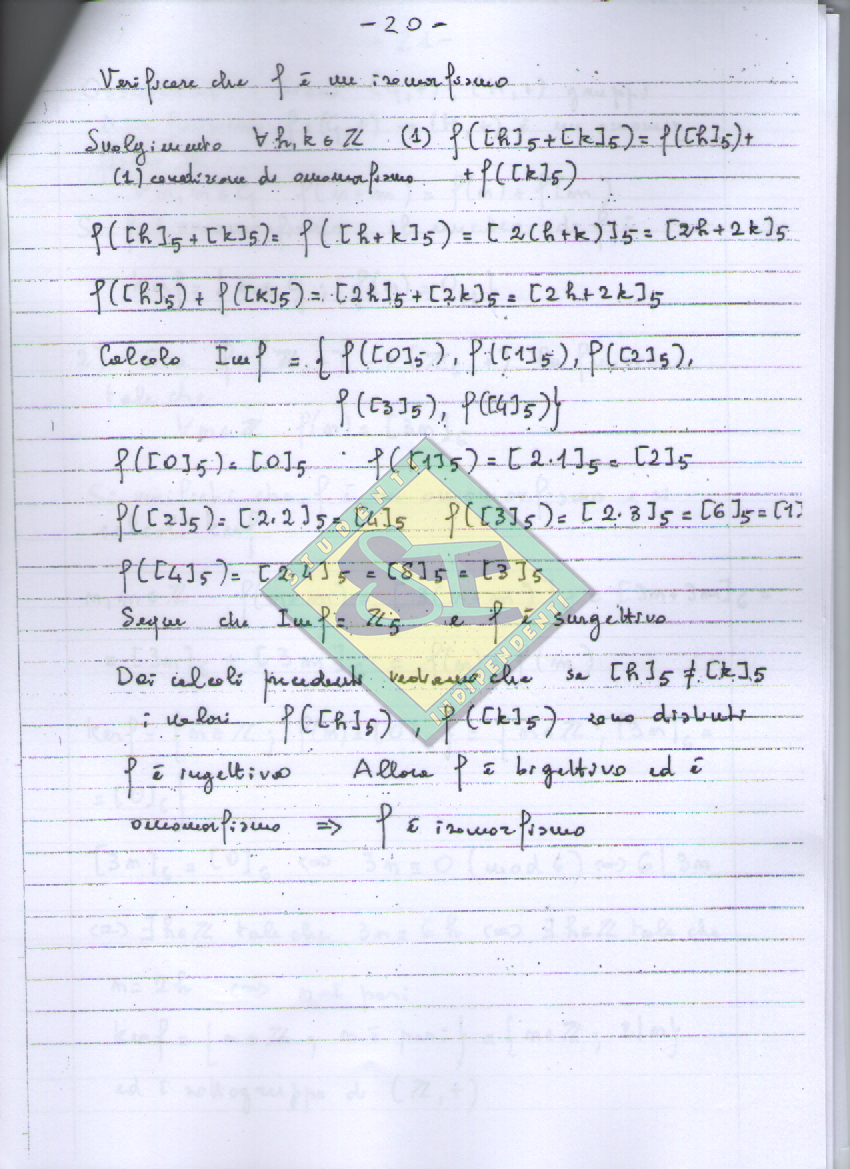 - 20 -
Verificare che f è un isomorfismo
Svolgimento ∀ h, k ∈ ℤ (1) f([h]5+[k]5)= f([h]5)+
(1) condizione di omomorfismo + f([k]5)
f([h]5+[k]5)= f([h+k]5) = [2(h+k)]5= [2h+2k]5
f([h]5)+ f([k]5)= [2h]5+[2k]5= [2h+2k]5
Calcolo Imf = { f([0]5), f([1]5), f([2]5),
f([3]5), f([4]5)}
f([0]5)= [0]5 f([1]5)= [2·1]5= [2]5
f([2]5)= [2·2]5= [4]5 f([3]5)= [2·3]5= [6]5= [1]
f([4]5)= [2·4]5 = [8]5 = [3]5
Segue che Imf= ℤ5 e f è surgettivo
Dai calcoli precedenti vediamo che se [h]5 ≠ [k]5
i valori f([h]5), f([k]5) sono distinti
f è ingettivo Allora f è bigettivo ed è
omomorfismo => f è isomorfismo
STUDENTI
SI
INDIPENDENTI